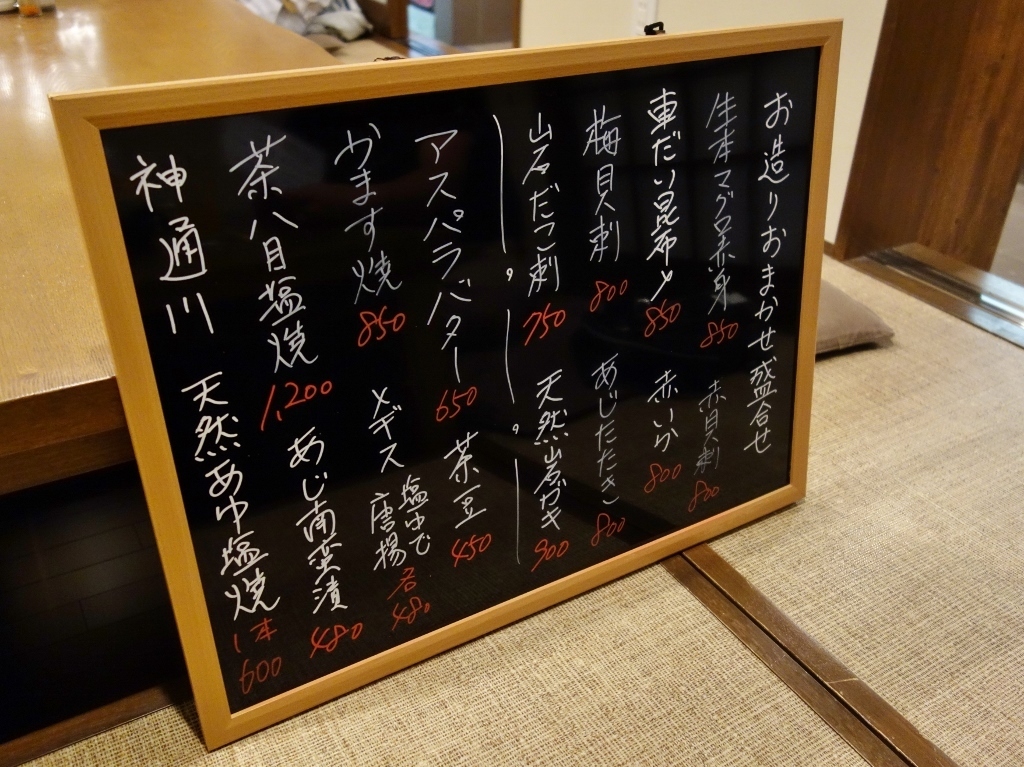 お造りおまかせ盛合せ
生本マグロ赤身 850 赤貝刺 800
車だい昆布〆 850 赤いか 800
梅貝刺 800 あじたたき 800
岩だこ刺 750 天然岩ガキ 900
アスパラバター 650 茶豆 450
かます焼 850 メギス 塩ゆで 唐揚 各480
茶八目塩焼 1,200 あじ南蛮漬 480
神通川 天然あゆ塩焼 1本 600